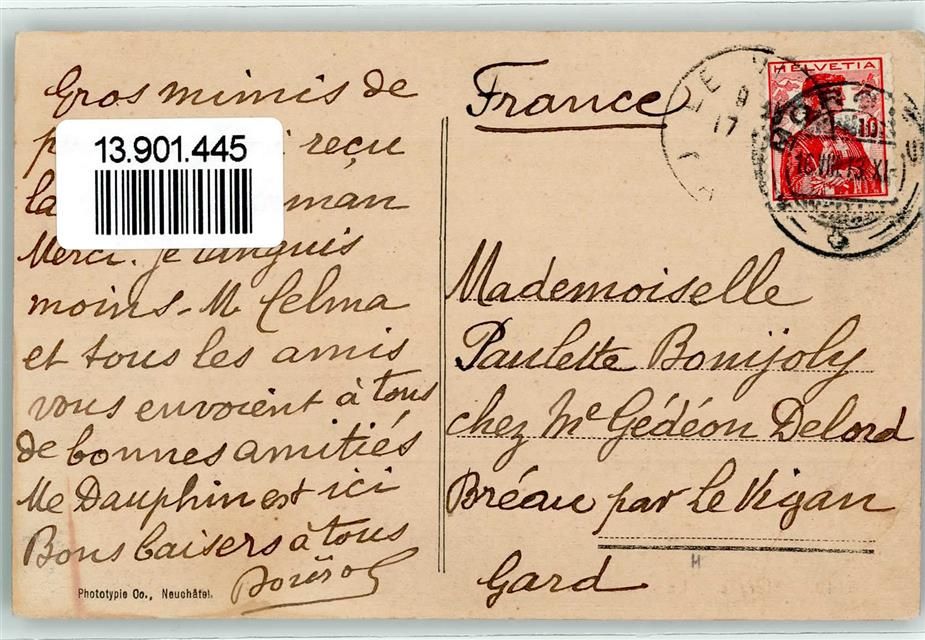 Gros mimis de
reçu
la man
Merci. Je languis
moins - M Celma
et tous les amis
vous envoient à tous
de bonnes amitiés
Me Dauphin est ici
Bons baisers à tous
13.901.445
Phototypie Co., Neuchâtel.
France
HELVETIA
10
Mademoiselle
Paulette Bonijoly
chez Me Gédéon Delord
Bréau par Le Vigan
Gard